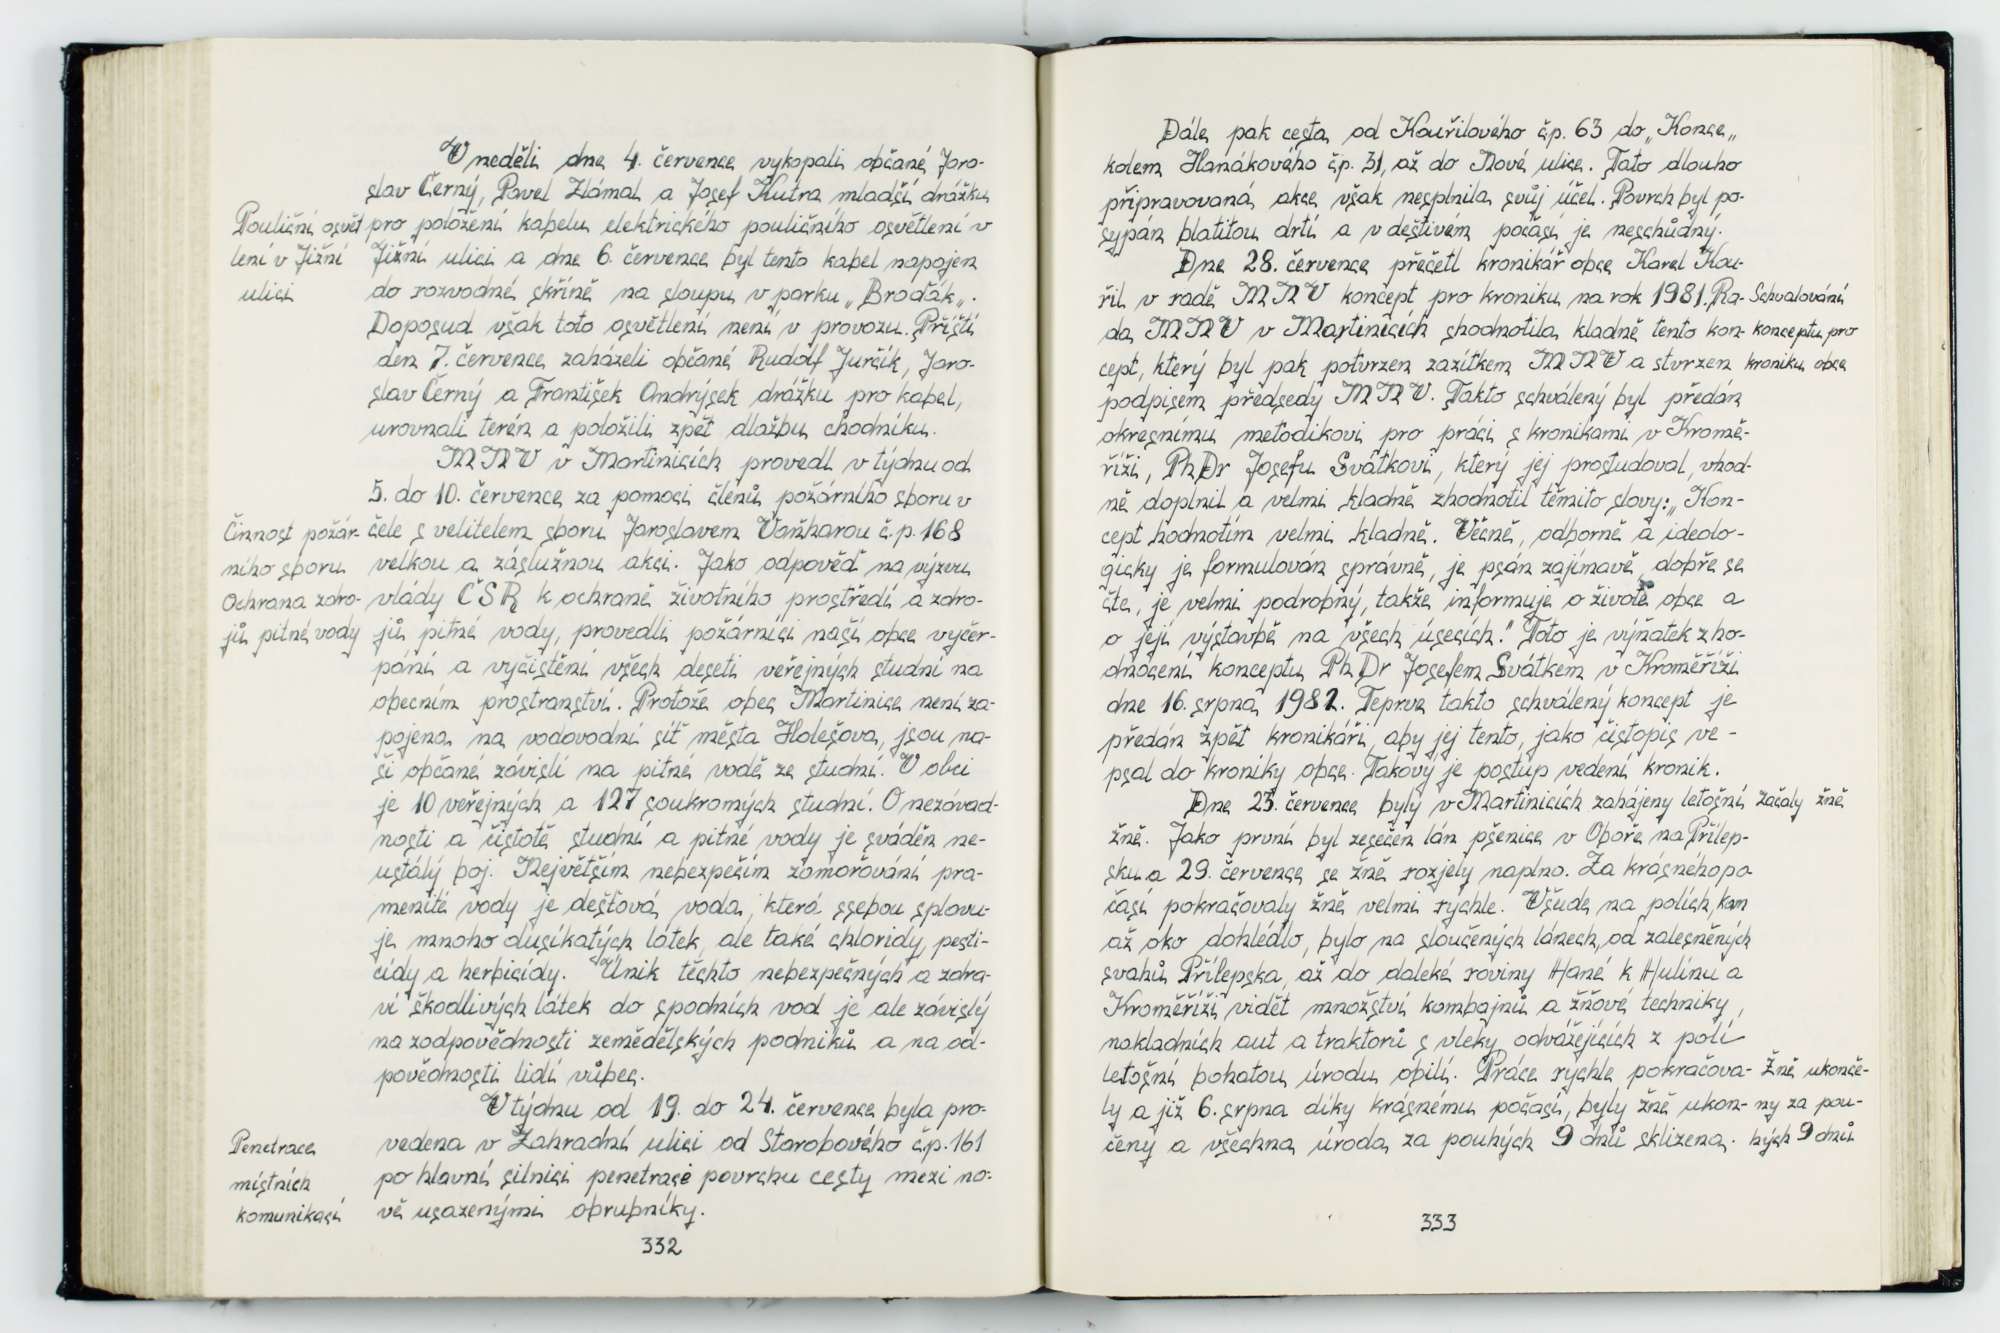 V neděli dne 4. července vykopali občané Jaro-
slav Černý, Pavel Zlámal a Josef Kutra mladší drážku
Pouliční osvět
lení v Jižní
ulici
pro položení kabelu elektrického pouličního osvětlení v
Jižní ulici a dne 6. července byl tento kabel napojen
do rozvodné skříně na sloupu v parku „Broďák„.
Doposud však toto osvětlení není v provozu. Příští
den 7. července zaházeli občané Rudolf Jurčík, Jaro-
slav Černý a František Ondrýsek drážku pro kabel,
urovnali terén a položili zpět dlažbu chodníku.
MNV v Martinicích provedl v týdnu od
5. do 10. července za pomoci členů požárního sboru v
Činnost požár-
ního sboru
Ochrana zdro-
jů pitné vody
čele s velitelem sboru Jaroslavem Vaňharou č.p. 168
velkou a záslužnou akci. Jako odpověď na výzvu
vlády ČSR k ochraně životního prostředí a zdro-
jů pitné vody, provedli požárníci naší obce vyčer-
pání a vyčištění všech deseti veřejných studní na
obecním prostranství. Protože obec Martinice není za-
pojena na vodovodní síť města Holešova, jsou na-
ši občané závislí na pitné vodě ze studní. V obci
je 10 veřejných a 127 soukromých studní. O nezávad-
nosti a čistotě studní a pitné vody je sváděn ne-
ustálý boj. Největším nebezpečím zamořování pra-
menité vody je dešťová voda, která ssebou splavu-
je mnoho dusíkatých látek, ale také chloridy, pesti-
cidy a herbicidy. Únik těchto nebezpečných a zdra-
ví škodlivých látek do spodních vod je ale závislý
na zodpovědnosti zemědělských podniků a na od-
povědnosti lidí vůbec.
V týdnu od 19. do 24. července byla pro-
Penetrace
místních
komunikací
vedena v Zahradní ulici od Starobového č.p. 161
po hlavní silnici penetrace povrchu cesty mezi no-
vě usazenými obrubníky.
332
Dále pak cesta od Kouřilového čp. 63 do „Konce„
kolem Hanákového čp. 31, až do Nové ulice. Tato dlouho
připravovaná akce však nesplnila svůj účel. Povrch byl po-
sypán blatitou drtí a v deštivém počasí je neschůdný.
Dne 28. července přečetl kronikář obce Karel Kou-
řil v radě MNV koncept pro kroniku na rok 1981. Ra-
Schvalování
konceptu pro
kroniku obce
da MNV v Martinicích shodnotila kladně tento kon-
cept, který byl pak potvrzen razítkem MNV a stvrzen
podpisem předsedy MNV. Takto schválený byl předán
okresnímu metodikovi pro práci s kronikami v Kromě-
říži, PhDr Josefu Svátkovi, který jej prostudoval, vhod-
ně doplnil a velmi kladně zhodnotil těmito slovy: „Kon-
cept hodnotím velmi kladně. Věcně, odborně a ideolo-
gicky je formulován správně, je psán zajímavě, dobře se
čte, je velmi podrobný, takže informuje o životě obce a
o její výstavbě na všech úsecích." Toto je výňatek z ho-
dnocení konceptu PhDr Josefem Svátkem v Kroměříži
dne 16. srpna 1982. Teprve takto schválený koncept je
předán zpět kronikáři, aby jej tento, jako čistopis ve-
psal do kroniky obce. Takový je postup vedení kronik.
Dne 23. července byly v Martinicích zahájeny letošní
začaly žně
žně. Jako první byl zesečen lán pšenice v Oboře na Přílep-
sku a 29. července se žně rozjely naplno. Za krásného po
časí pokračovaly žně velmi rychle. Všude na polích, kam
až oko dohlédlo, bylo na sloučených lánech, od zalesněných
svahů Přílepska, až do daleké roviny Hané k Hulínu a
Kroměříži vidět množství kombajnů a žňové techniky,
nakladních aut a traktorů s vleky, odvážejících z polí
letošní bohatou úrodu obilí. Práce rychle pokračova-
Žně ukonče-
ny za pou-
hých 9 dnů
ly a již 6. srpna díky krásnému počasí, byly žně ukon-
čeny a všechna úroda za pouhých 9 dnů sklizena.
333